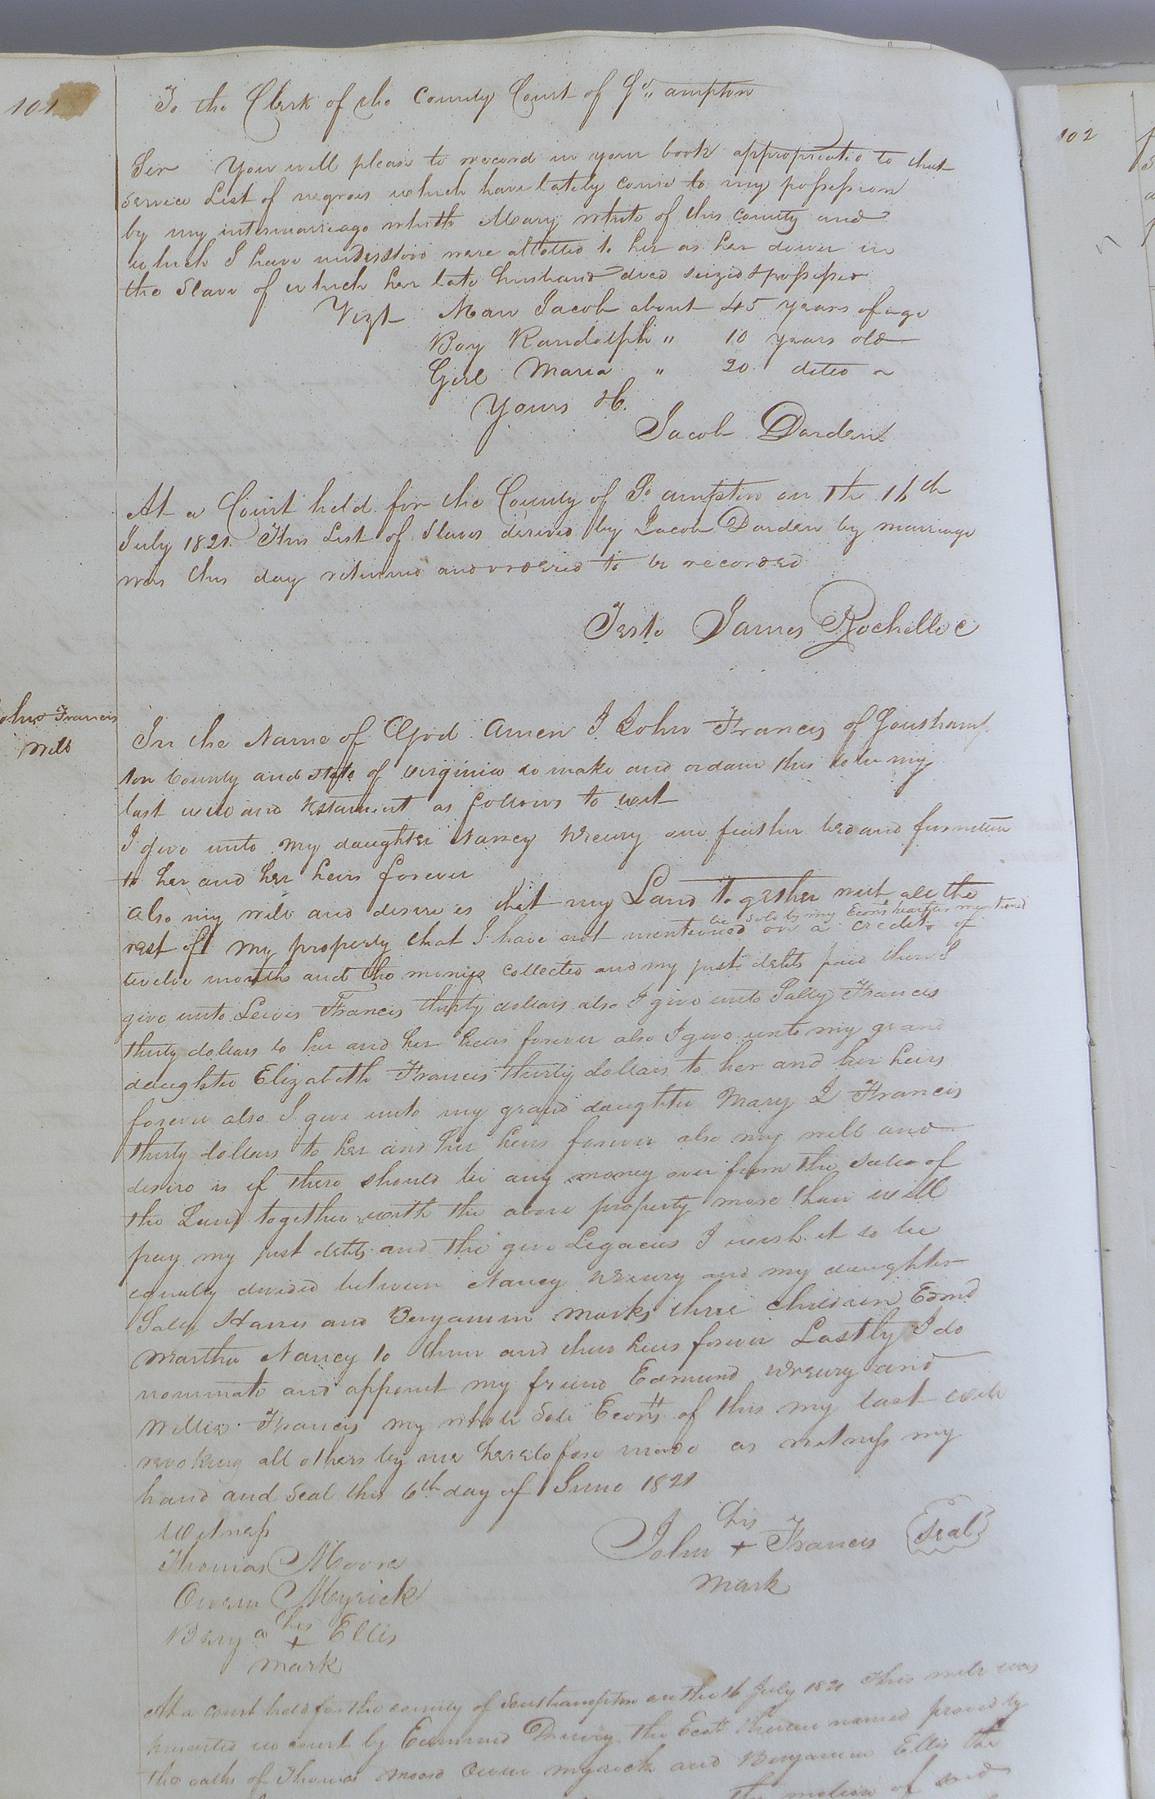 101
To the Clerk of the County Court of So,, ampton
Sir You will please to record in your book appropriated to that
service List of negroes which have lately come to my possession
by my intermarriage whith Mary white of this county and
which I have understood were allotted to her as her dower in
the Slave of which her late husband died seized & possessed
Vizt Man Jacob about 45 years of age
Boy Randolph " 10 years old
Girl Maria " 20 ditto
Yours &c.
Jacob Darden
At a Court held for the County of So ampton on the 16th
July 1821 This List of Slaves derived by Jacob Darden by marriage
was this day returned and ordered to be recorded
Teste James Rochelle C
John Francis
Will
In the Name of God Amen I John Francis of Southamp
ton County and state of virginia do make and ordain this to be my
last will and testament as follows to wit
I give unto my daughter Nancy Drewry one feather bed and furniture
to her and her heirs forever
also my will and desire is that my Land together with all the
be sold by my Exors hereafter mentioned
rest of my property that I have not mentioned on a credit of
twelve months and the moneys collected and my just debts paid then I
give unto Lewis Francis thirty dollars also I give unto Sally Francis
thirty dollars to her and her heirs forever also I give unto my grand
daughter Elizabeth Francis thirty dollars to her and her heirs
forever also I give unto my grand daughter Mary J Francis
thirty dollars to her and her heirs forever also my will and
desire is if there should be any money over from the sales of
the Land together with the above property more than will
pay my just debts and the give Legacies I wish it to be
equally divided between Nancy Drewry and my daughter
Sally Harris and Benjamin Marks three children Edmd
Martha Nancy to them and their heirs forever Lastly I do
nominate and appoint my friend Edmund Drewry and
Willis Francis my whole Sole Exors of this my last will
revoking all others by me heretofore made as witness my
hand and Seal this 6th day of June 1821
Witness
his
Thomas Moore
John + Francis Seal
Owen Myrick
mark
his
Benj a + Ellis
mark
At a court held for the county of Southampton on the 16 July 1821 This will was
presented in court by Edmund Drewry the Exor therein named proved by
the oaths of Thomas Moore Owen Myrick and Benjamin Ellis the
the motion of said
102